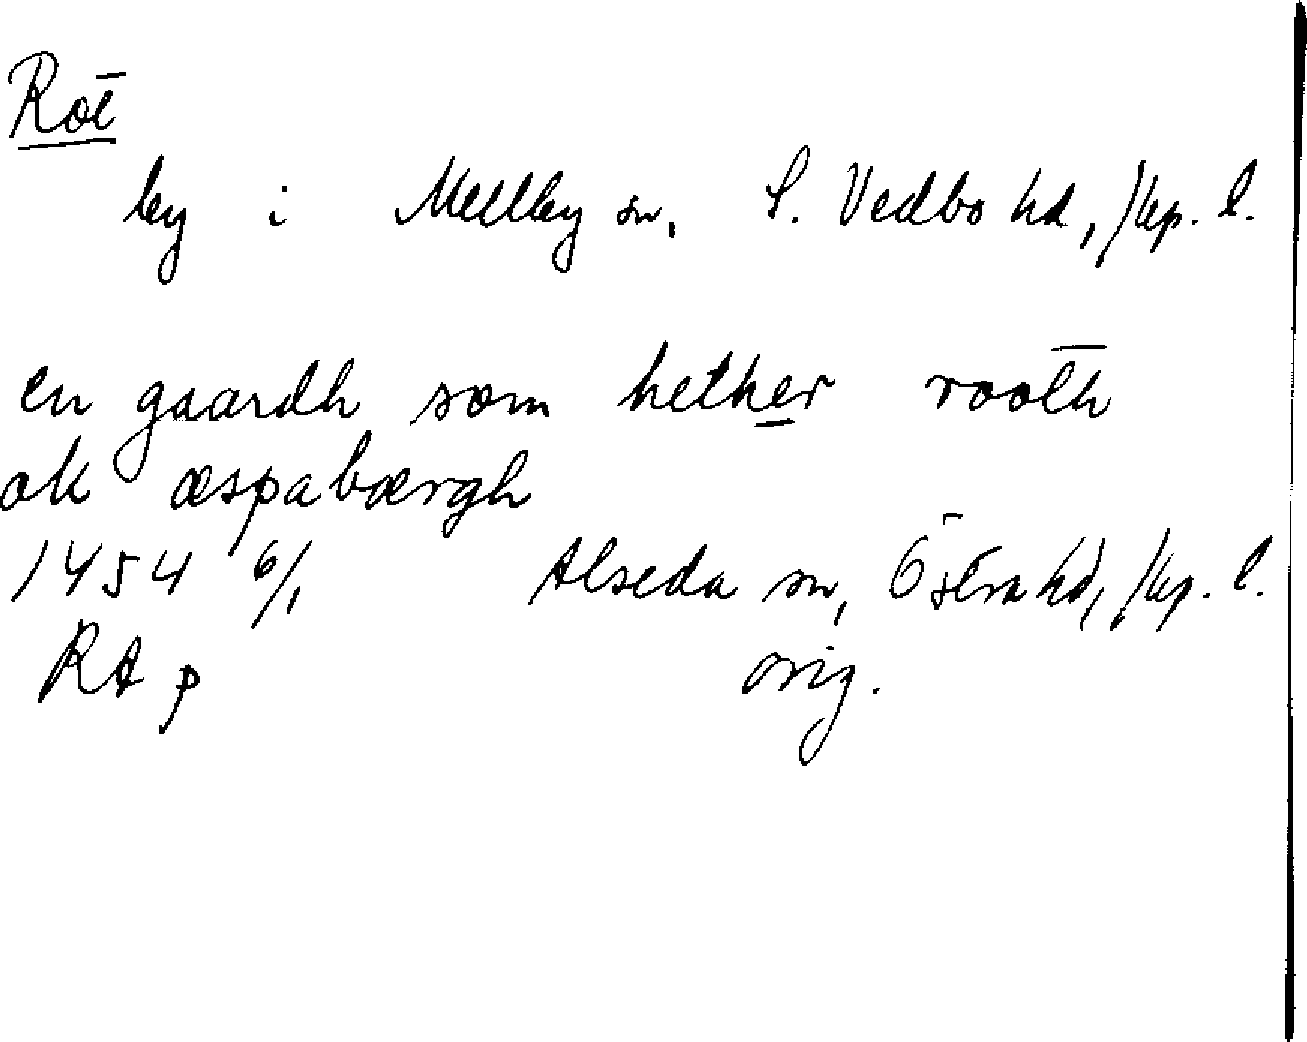 Rot
by i Mellby sn, S. Vedbo hd, Jkp. l.
en gaardh som hether rooth
ok æspabærgh
1454 6/1 Alseda sn, Östra hd, Jkp. l.
RA p orig.